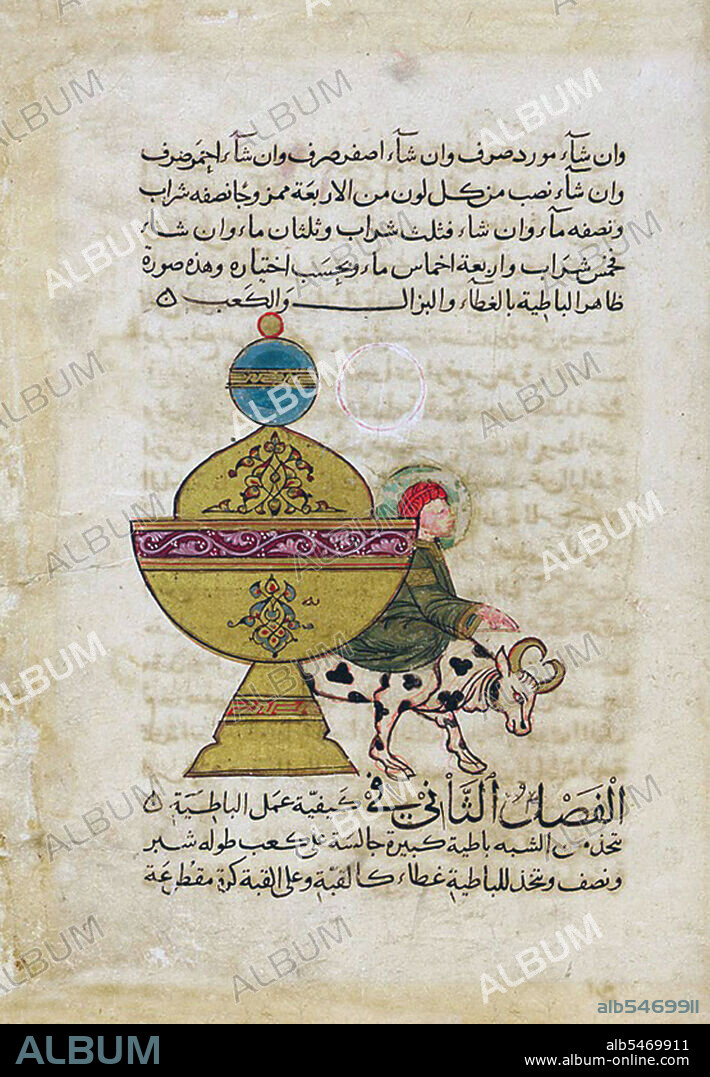 وان شآء مورد صرف وان شآء اصفر صرف وان شآء احمر صرف
وان شآء نصب من كل لون من الاربعة ممزوجا نصفه شراب
ونصفه مآء وان شاء فثلث شراب وثلثان ماء وان شاء
فخمس شراب واربعة اخماس ماء وبحسب اختياره وهذه صورة
ظاهر الباطية بالغطآء والبزال والكعب
الفصل الثاني في كيفية عمل الباطية
يتخذ من الشبه باطية كبيرة جالسة على كعب طوله شبر
ونصف ويتخذ للباطية غطاء كالقبة وعلى القبة كرة مقطوعة
alb5469911
ALBUM
alb5469911
www.album-online.com